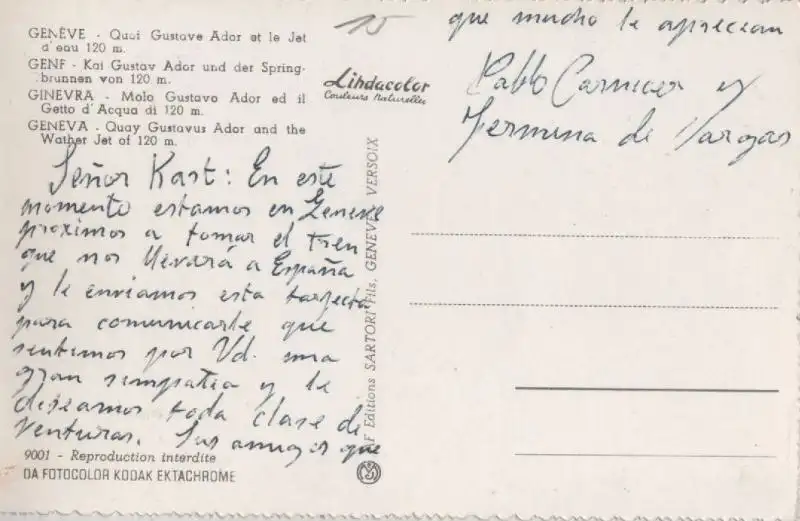 GENÈVE - Quai Gustave Ador et le Jet
d'eau 120 m.
GENF - Kai Gustav Ador und der Spring-
brunnen von 120 m.
GINEVRA - Molo Gustavo Ador ed il
Getto d'Acqua di 120 m.
GENEVA - Quay Gustavus Ador and the
Wather Jet of 120 m.
15
Lindacolor
Couleurs Naturelles
Señor Kast: En este
momento estamos en Geneve
proximos a tomar el tren
que nos llevará a España
y le enviamos esta tarjeta
para comunicarle que
sentimos por Vd. una
gran simpatia y le
deseamos toda clase de
venturas. Sus amigos que
que mucho le aprecian
Pablo Carnicer y
Fermina de Vargas
Editions SARTORI Fils, GENEVE VERSOIX
9001 - Reproduction interdite
DA FOTOCOLOR KODAK EKTACHROME